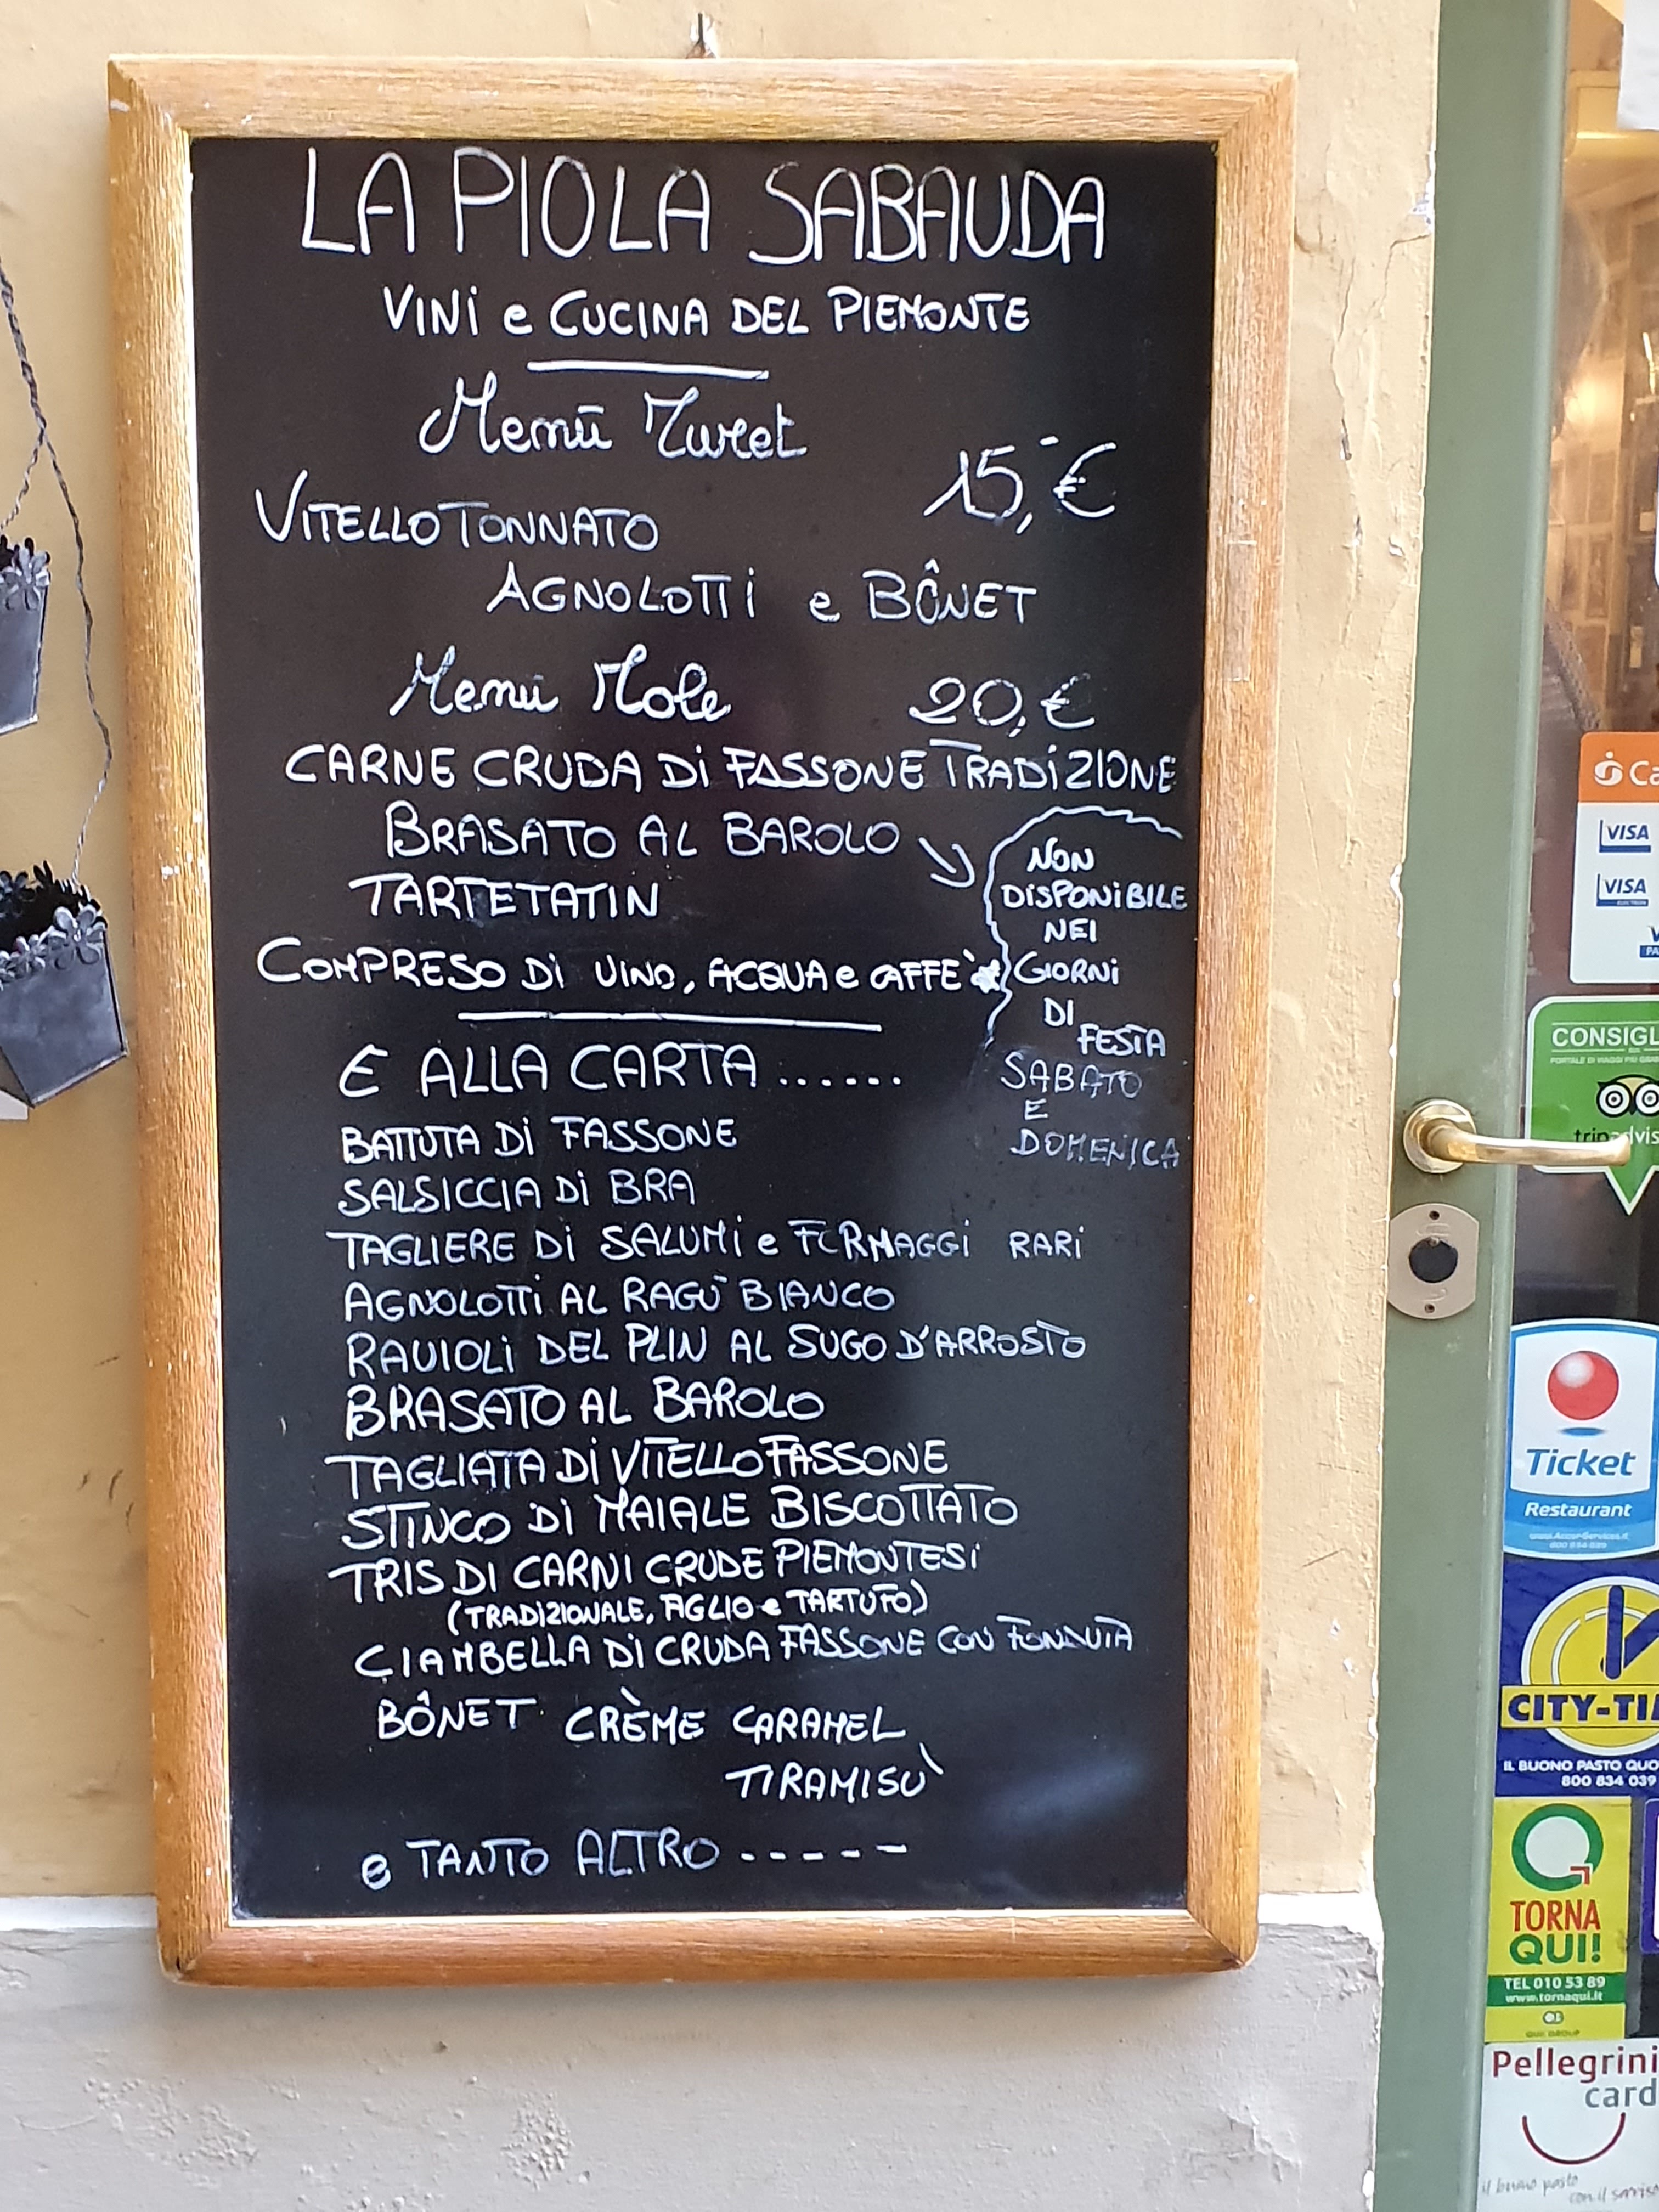 LA PIOLA SABAUDA
VINI e CUCINA DEL PIEMONTE
Menū Turet
15,-€
VITELLO TONNATO
AGNOLOTTI e BÔNET
Menu Mole 20,€
CARNE CRUDA DI FASSONE TRADIZIONE
BRASATO AL BAROLO
TARTETATIN
COMPRESO DI VINO, ACQUA e CAFFE'
NON
DISPONIBILE
NEI
GIORNI
DI
FESTA
SABATO
E
DOMENICA
E ALLA CARTA ......
BATTUTA DI FASSONE
SALSICCIA DI BRA
TAGLIERE DI SALUMI e FORMAGGI RARI
AGNOLOTTI AL RAGÙ BIANCO
RAVIOLI DEL PLIN AL SUGO D'ARROSTO
BRASATO AL BAROLO
TAGLIATA DI VITELLO FASSONE
STINCO DI MAIALE BISCOTTATO
TRIS DI CARNI CRUDE PIEMONTESI
(TRADIZIONALE, AGLIO e TARTUFO)
CIAMBELLA DI CRUDA FASSONE CON FONDUTA
BÔNET CRÈME CARAMEL
TIRAMISÙ
e TANTO ALTRO -----
Ca
VISA
VISA
ELECTRON
V
PA
CONSIGL
tripadvis
Ticket
Restaurant
CITY-TI
IL BUONO PASTO QUO
800 834 039
TORNA
QUI!
TEL 010 53 89
www.tornaqui.it
QUI! GROUP
Pellegrini
card
il buono pasto
con il sorriso